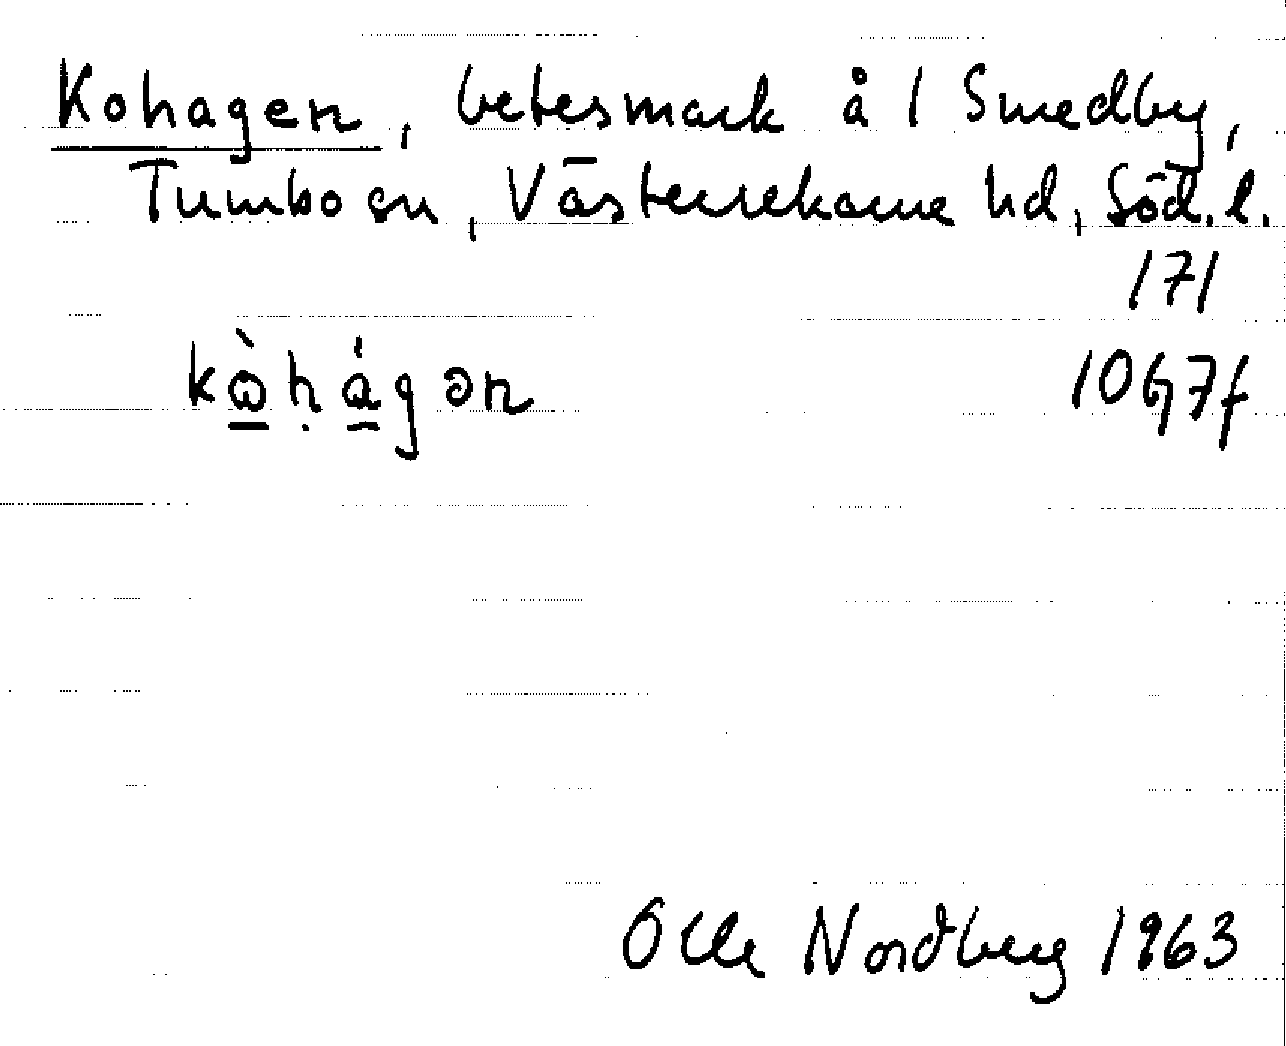 Kohagen, betesmark å 1 Smedby,
Tumbo sn, Västerrekarne hd, Söd. l.
171
kòhágən
10G7f
Olle Nordberg 1963